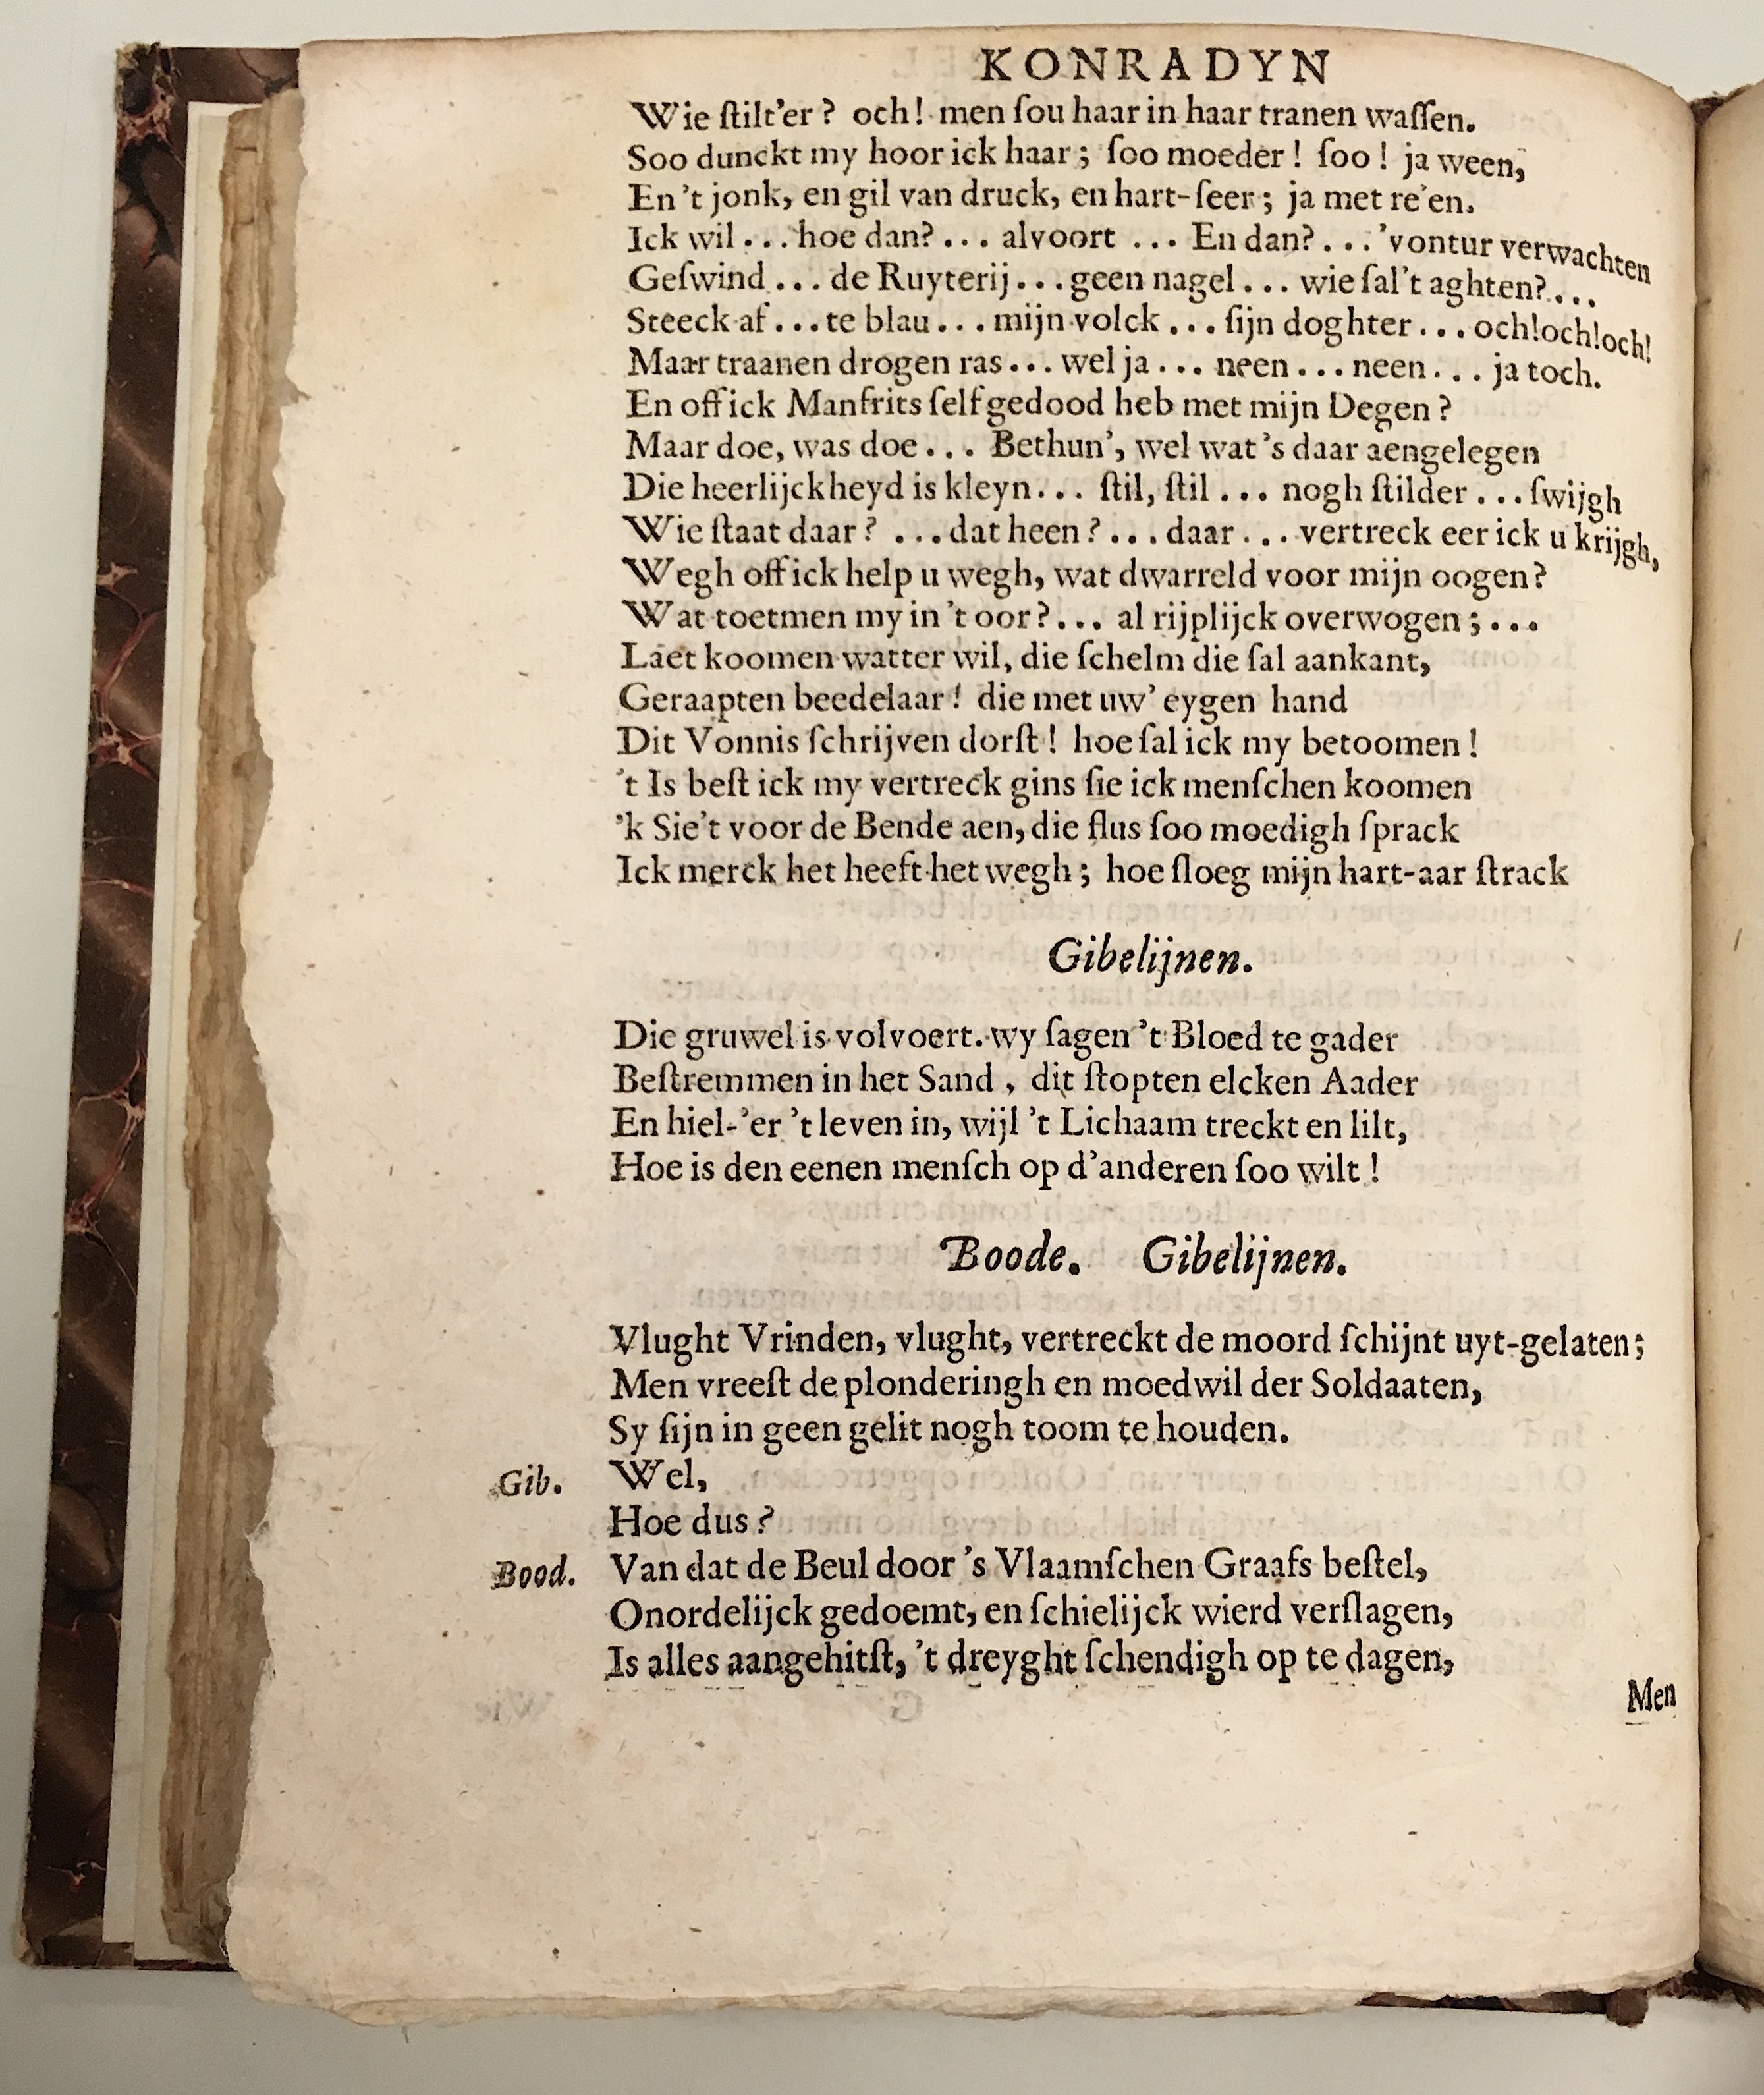 KONRADYN
Wie ſtilt'er? och! men ſou haar in haar tranen waſſen.
Soo dunckt my hoor ick haar; ſoo moeder! ſoo! ja ween,
En 't jonk, en gil van druck, en hart-ſeer; ja met re'en.
Ick wil... hoe dan?... alvoort ... En dan?... 'vontur verwachten
Geſwind... de Ruyterij... geen nagel... wie ſal't aghten?...
Steeck af... te blau... mijn volck... ſijn doghter... och!och!och!
Maar traanen drogen ras... wel ja... neen... neen... ja toch.
En off ick Manfrits ſelf gedood heb met mijn Degen?
Maar doe, was doe... Bethun', wel wat 's daar aengelegen
Die heerlijckheyd is kleyn... ſtil, ſtil... nogh ſtilder... ſwijgh
Wie ſtaat daar? ... dat heen?... daar... vertreck eer ick u krijgh,
Wegh off ick help u wegh, wat dwarreld voor mijn oogen?
Wat toetmen my in 't oor?... al rijplijck overwogen;...
Laet koomen watter wil, die ſchelm die ſal aankant,
Geraapten beedelaar! die met uw' eygen hand
Dit Vonnis ſchrijven dorſt! hoe ſal ick my betoomen!
't Is beſt ick my vertreck gins ſie ick menſchen koomen
'k Sie't voor de Bende aen, die flus ſoo moedigh ſprack
Ick merck het heeft het wegh; hoe ſloeg mijn hart-aar ſtrack
Gibelijnen.
Die gruwel is volvoert. wy ſagen 't Bloed te gader
Beſtremmen in het Sand, dit ſtopten elcken Aader
En hiel-'er 't leven in, wijl 't Lichaam treckt en lilt,
Hoe is den eenen menſch op d'anderen ſoo wilt!
Boode. Gibelijnen.
Vlught Vrinden, vlught, vertreckt de moord ſchijnt uyt-gelaten;
Men vreeſt de plonderingh en moedwil der Soldaaten,
Sy ſijn in geen gelit nogh toom te houden.
Gib. Wel,
Hoe dus?
Bood. Van dat de Beul door 's Vlaamſchen Graafs beſtel,
Onordelijck gedoemt, en ſchielijck wierd verſlagen,
Is alles aangehitſt, 't dreyght ſchendigh op te dagen,
Men